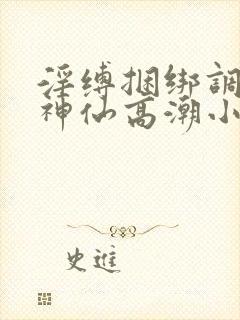 淫缚捆绑調
神仙高潮小
史進